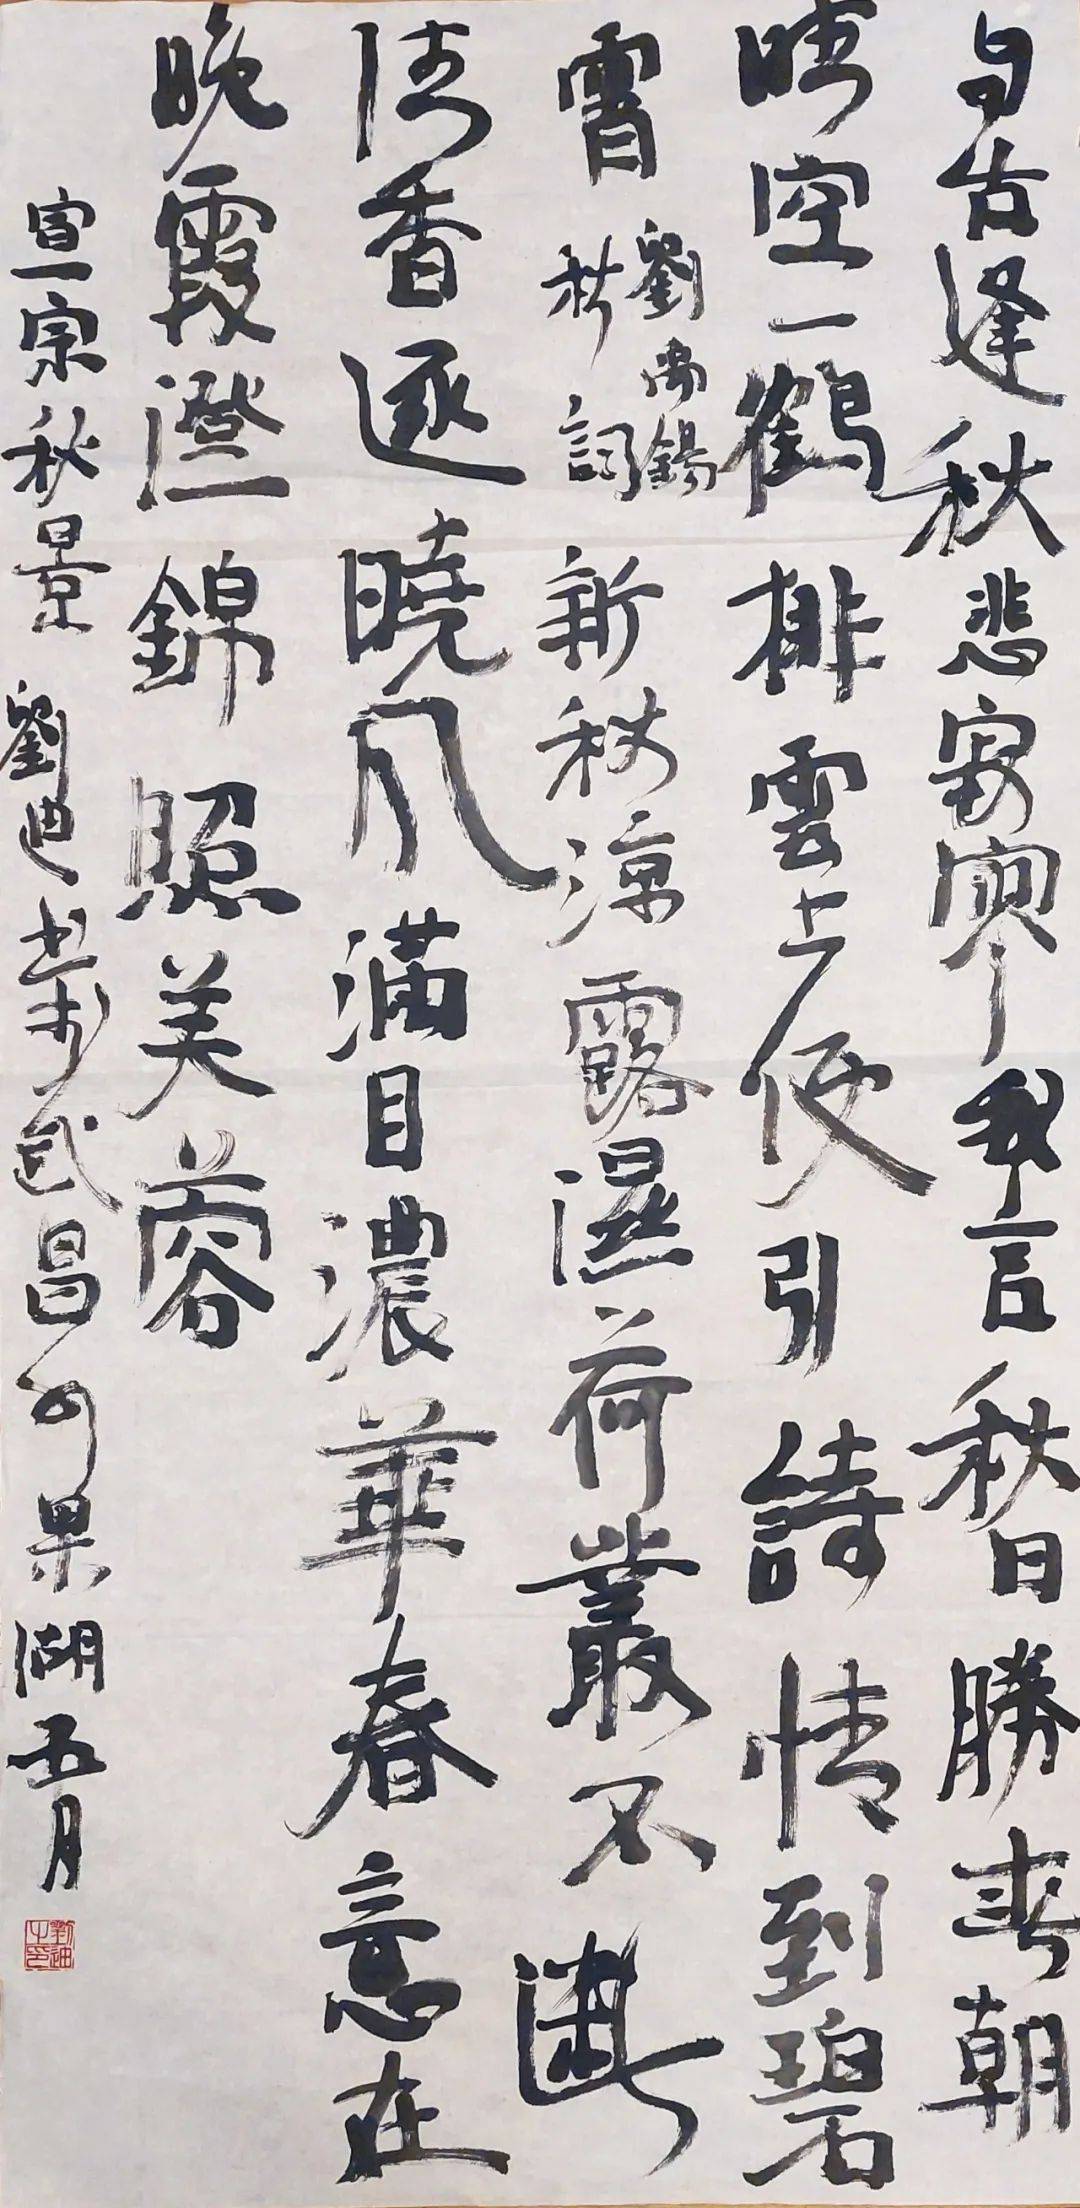 自古逢秋悲寂寥我言秋日勝春朝
晴空一鶴排雲上便引詩情到碧
霄
劉禹錫
秋詞
新秋涼露濕荷叢不斷
清香逐曉風滿目濃華春意在
晚霞澄錦照芙蓉
宣宗秋景 劉迪书於武昌水果湖五月
劉迪之印